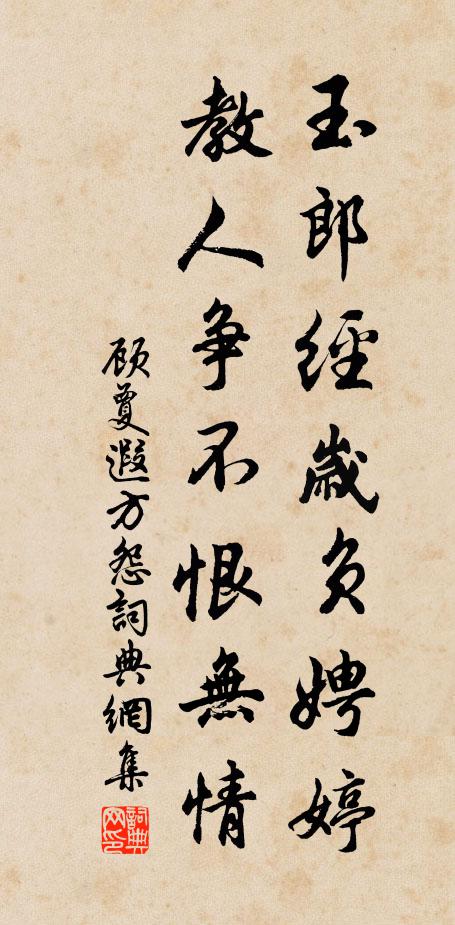 玉郎經歲負娉婷
教人爭不恨無情
顧敻遐方怨詞典網集
詞典网印